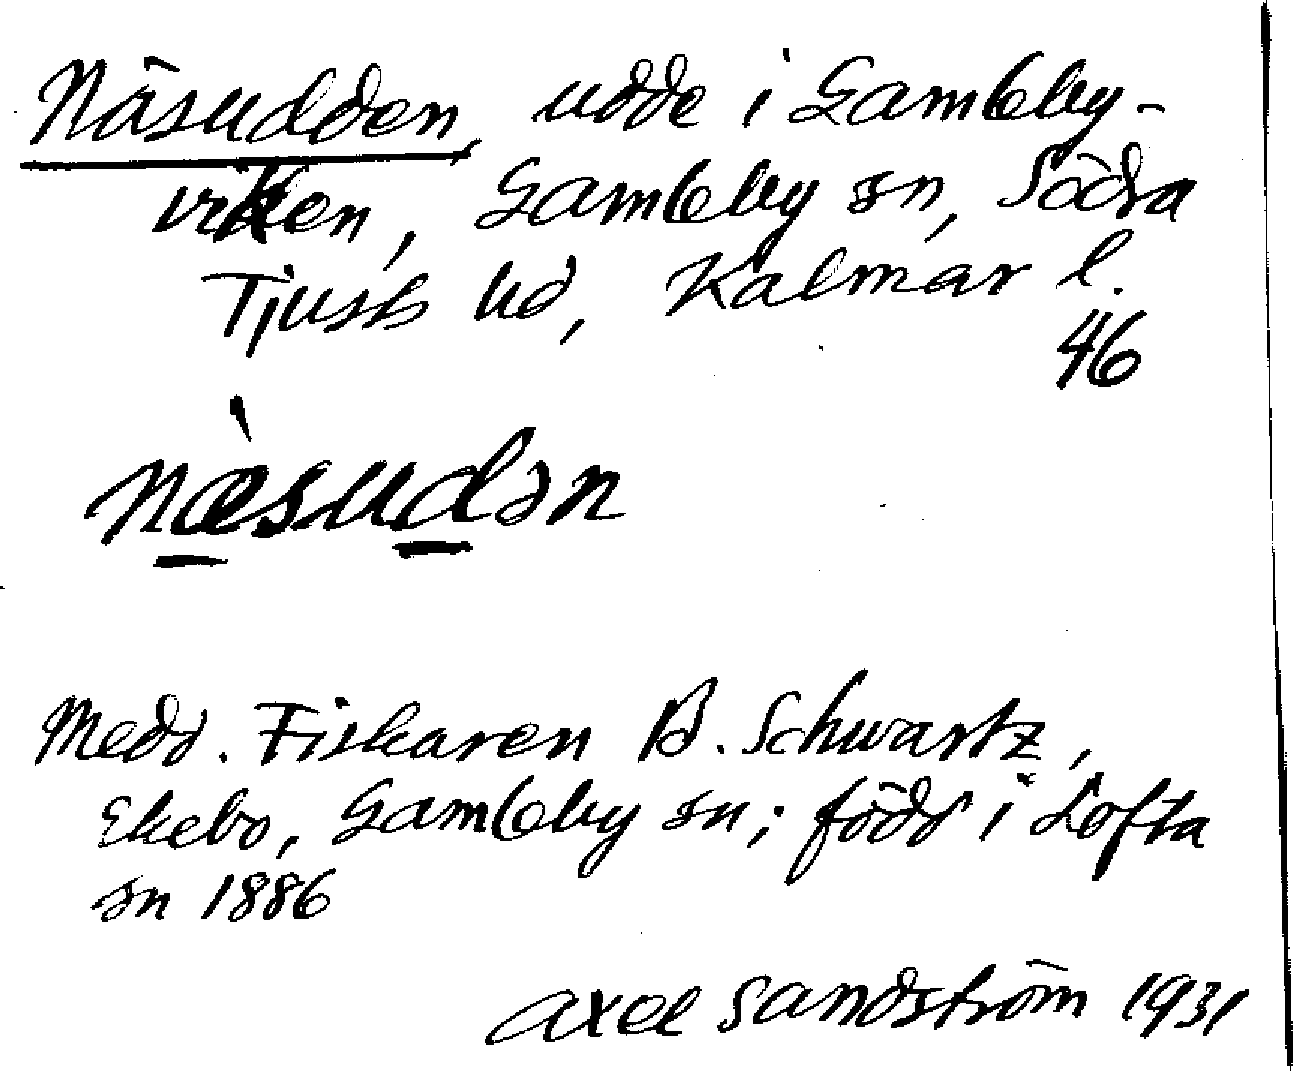 Näsudden, udde i Gamleby-
viken, Gamleby sn, Södra
Tjusts hd, Kalmar l.
46
næ̀sudən
Medd. Fiskaren B. Schwartz,
Ekebo, Gamleby sn; född i Lofta
sn 1886
Axel Sandström 1931